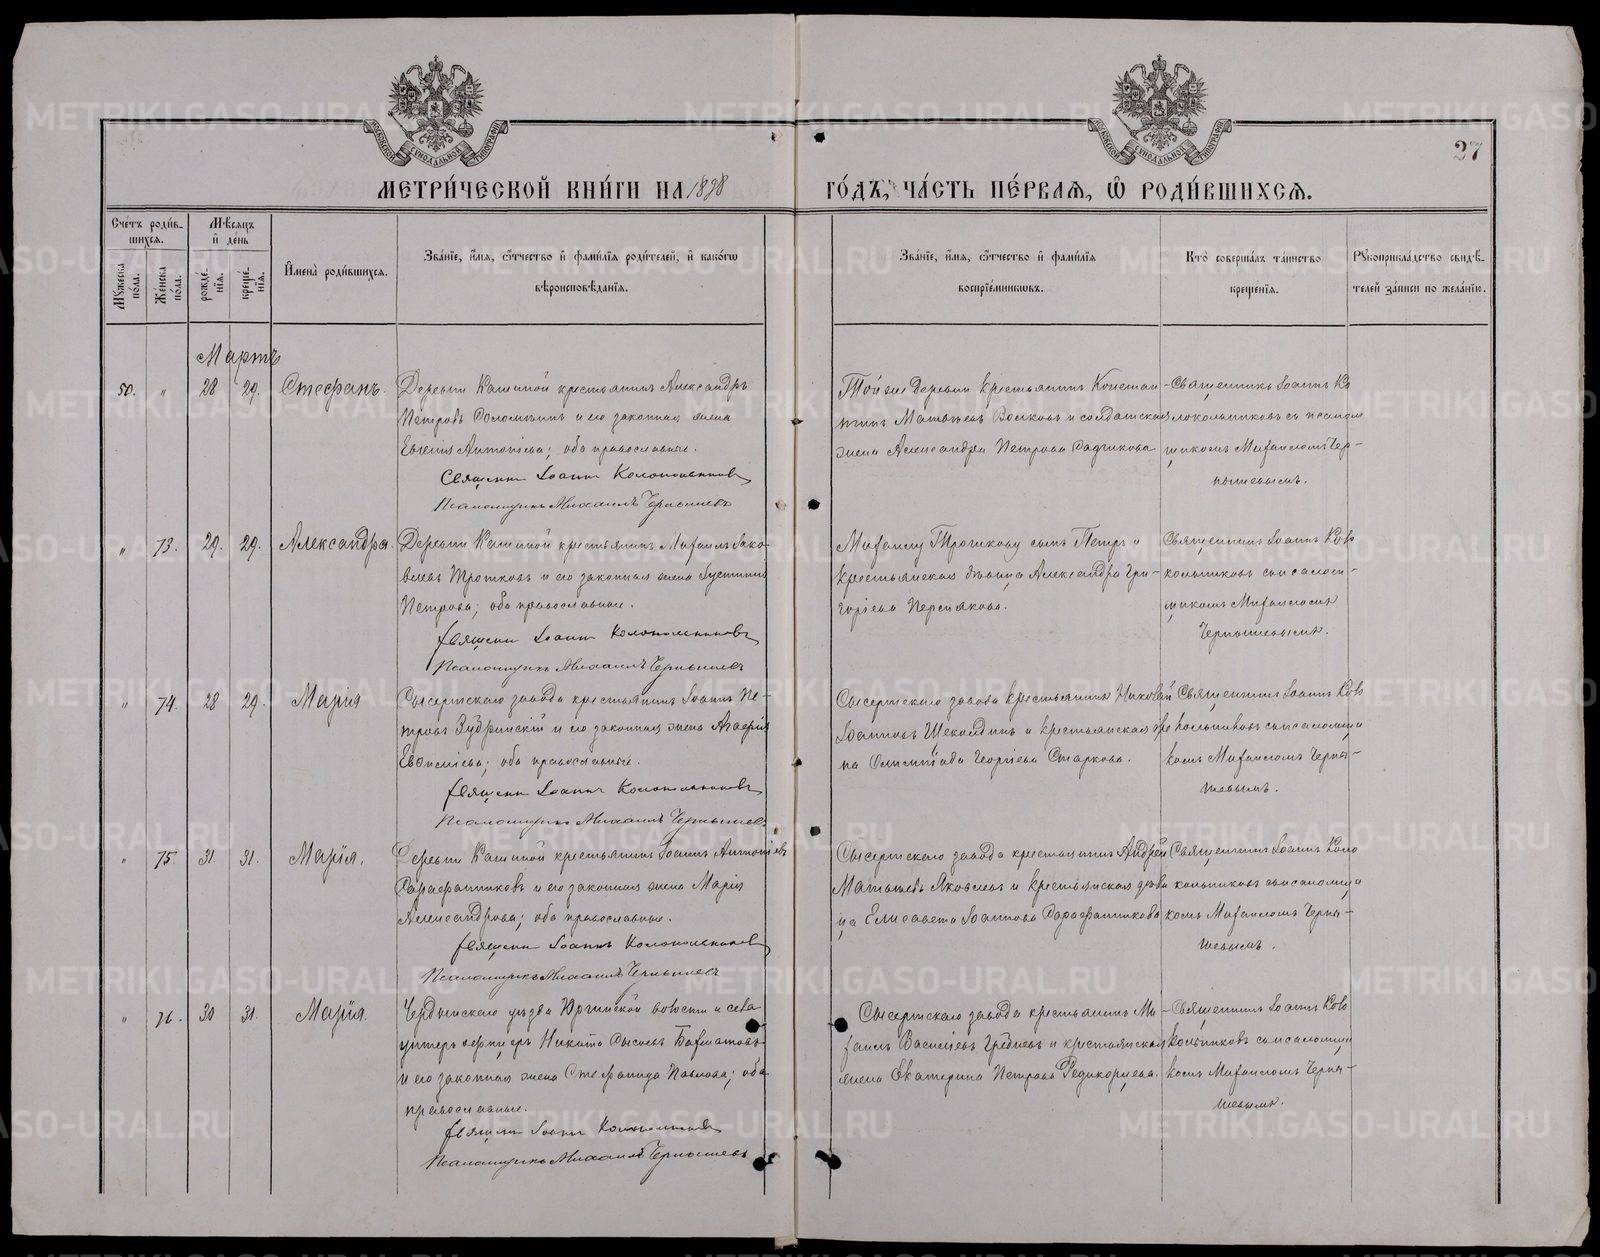 МОСКОВСКОЙ СУНОДАЛЬНОЙ ТИПОГРАФІИ
МОСКОВСКОЙ СУНОДАЛЬНОЙ ТИПОГРАФІИ
27
МЕТРИ́ЧЕСКОЙ КНИ́ГИ НА 1898
ГО́ДЪ, ЧА́СТЬ ПЕ́РВАѦ, Ѿ РОДИ́ВШИХСѦ.
Сче́тъ роди́в-
шихсѧ.
Мꙋжеска по́ла.
Же́нска по́ла.
Мѣ́сѧцъ
и҆ де́нь
рожде́-
нїѧ.
креще́-
нїѧ.
И҆мена̀ роди́вшихсѧ.
Зва́нїе, и҆́мѧ, ѻ҆́тчество и҆ фами́лїѧ роди́телей, и҆ како́гѡ
вѣроисповѣ́данїѧ.
Зва́нїе, и҆́мѧ, ѻ҆́тчество и҆ фами́лїѧ
воспрїе́мникѡвъ.
Кто̀ соверша́лъ та́инство
креще́нїѧ.
Рꙋкоприкла́дство свидѣ́-
телей за́писи по жела́нїю.
Мартъ
50. " 28 29. Стефанъ.
Деревни Кашиной крестьянинъ Александръ
Петровъ Соломеинъ и его законная жена
Евгенія Антоніева; оба православные.
Священн Іоаннъ Колокольниковъ
Псаломщикъ Михаилъ Чернышевъ
Той же деревни крестьянинъ Констан-
тинъ Матвѣевъ Волковъ и солдатская
жена Александра Петрова
Священникъ Іоаннъ Ко
локольниковъ съ псалом
щикомъ Михаиломъ Чер-
нышевымъ.
" 73. 29. 29. Александра.
Деревни Кашиной крестьянинъ Михаилъ Іако-
влевъ и его законная жена Іустинія
Петрова; оба православные.
Священн Іоаннъ Колокольниковъ
Псаломщикъ Михаилъ Чернышевъ
сынъ Петръ и
крестьянская дѣвица Александра Гри-
горіева Пермякова.
Священникъ Іоаннъ Коло
кольниковъ съ псалом-
щикомъ Михаиломъ
Чернышевымъ.
" 74. 28 29. Марія
Сысертскаго завода крестьянинъ Іоаннъ Пе-
тровъ и его законная жена Агафія
оба православные.
Священн Іоаннъ Колокольниковъ
Псаломщикъ Михаилъ Чернышевъ
Сысертскаго завода крестьянинъ Николай
Іоанновъ и крестьянская
Олимпіада Георгіева Старкова.
Священникъ Іоаннъ Коло
кольниковъ съ псаломщи
комъ Михаиломъ Черны-
шевымъ.
" 75. 31. 31. Марія.
Деревни Кашиной крестьянинъ Іоаннъ Антоніевъ
Сарафанниковъ и его законная жена Марія
Александрова; оба православные.
Священн Іоаннъ Колокольниковъ
Псаломщикъ Михаилъ Чернышевъ
Сысертскаго завода крестьянинъ Андрей
Матвѣевъ Яковлевъ и крестьянская дѣви
ца Елисавета Іоаннова Сарафанникова
Священникъ Іоаннъ Коло
кольниковъ съ псаломщи
комъ Михаиломъ Черны-
шевымъ.
" 76. 30 31. Марія.
Чердынскаго уѣзда волости и села
унтеръ офицеръ Никита
и его законная жена Стефанида Павлова; оба
православные.
Священн Іоаннъ Колокольниковъ
Псаломщикъ Михаилъ Чернышевъ
Сысертскаго завода крестьянинъ Ми-
хаилъ Василіевъ и крестьянская
жена Екатерина Петрова Федикорцева.
Священникъ Іоаннъ Коло
кольниковъ съ псаломщи
комъ Михаиломъ Черны-
шевымъ.
METRIKI.GASO-URAL.RU